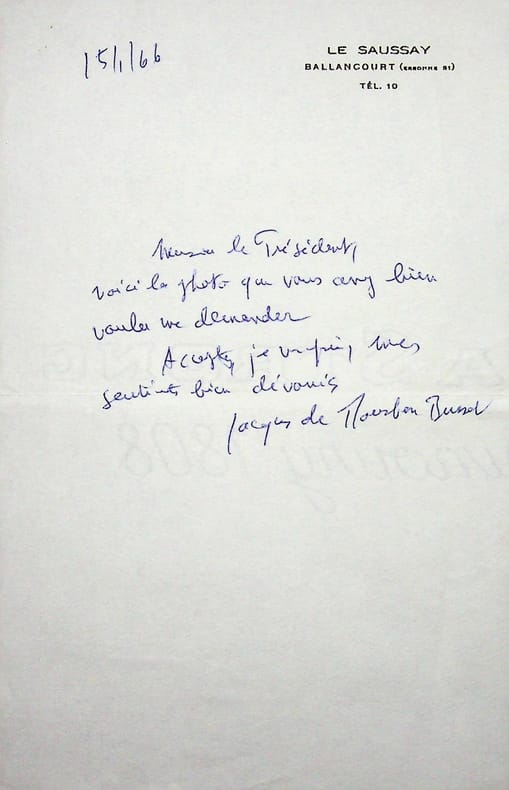 15/1/66
LE SAUSSAY
BALLANCOURT (ESSONNE 91)
TÉL. 10
Monsieur le Président,
voici la photo que vous avez bien
voulu me demander
Acceptez, je vous prie, mes
sentiments bien dévoués
Jacques de Bourbon Busset